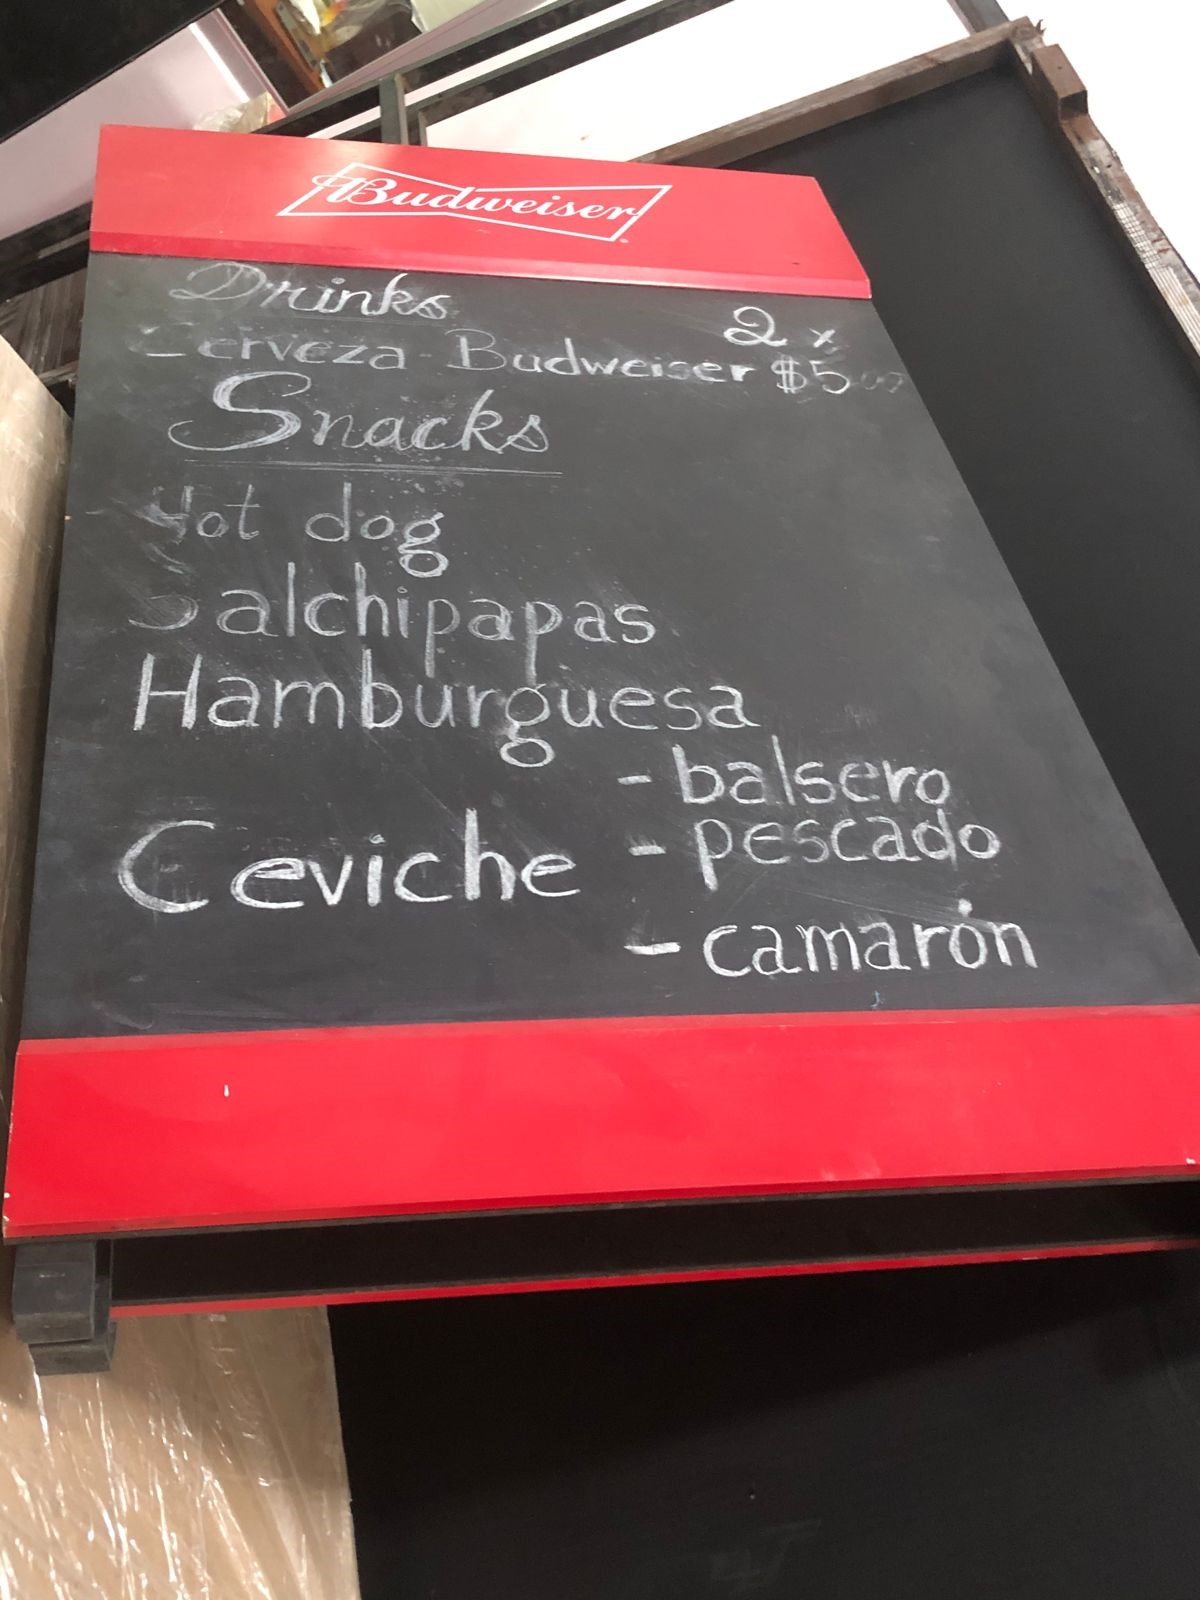 Budweiser
Drinks
2 x
Cerveza - Budweiser $5.00
Snacks
Hot dog
Salchipapas
Hamburguesa
- balsero
Ceviche - pescado
- camarón